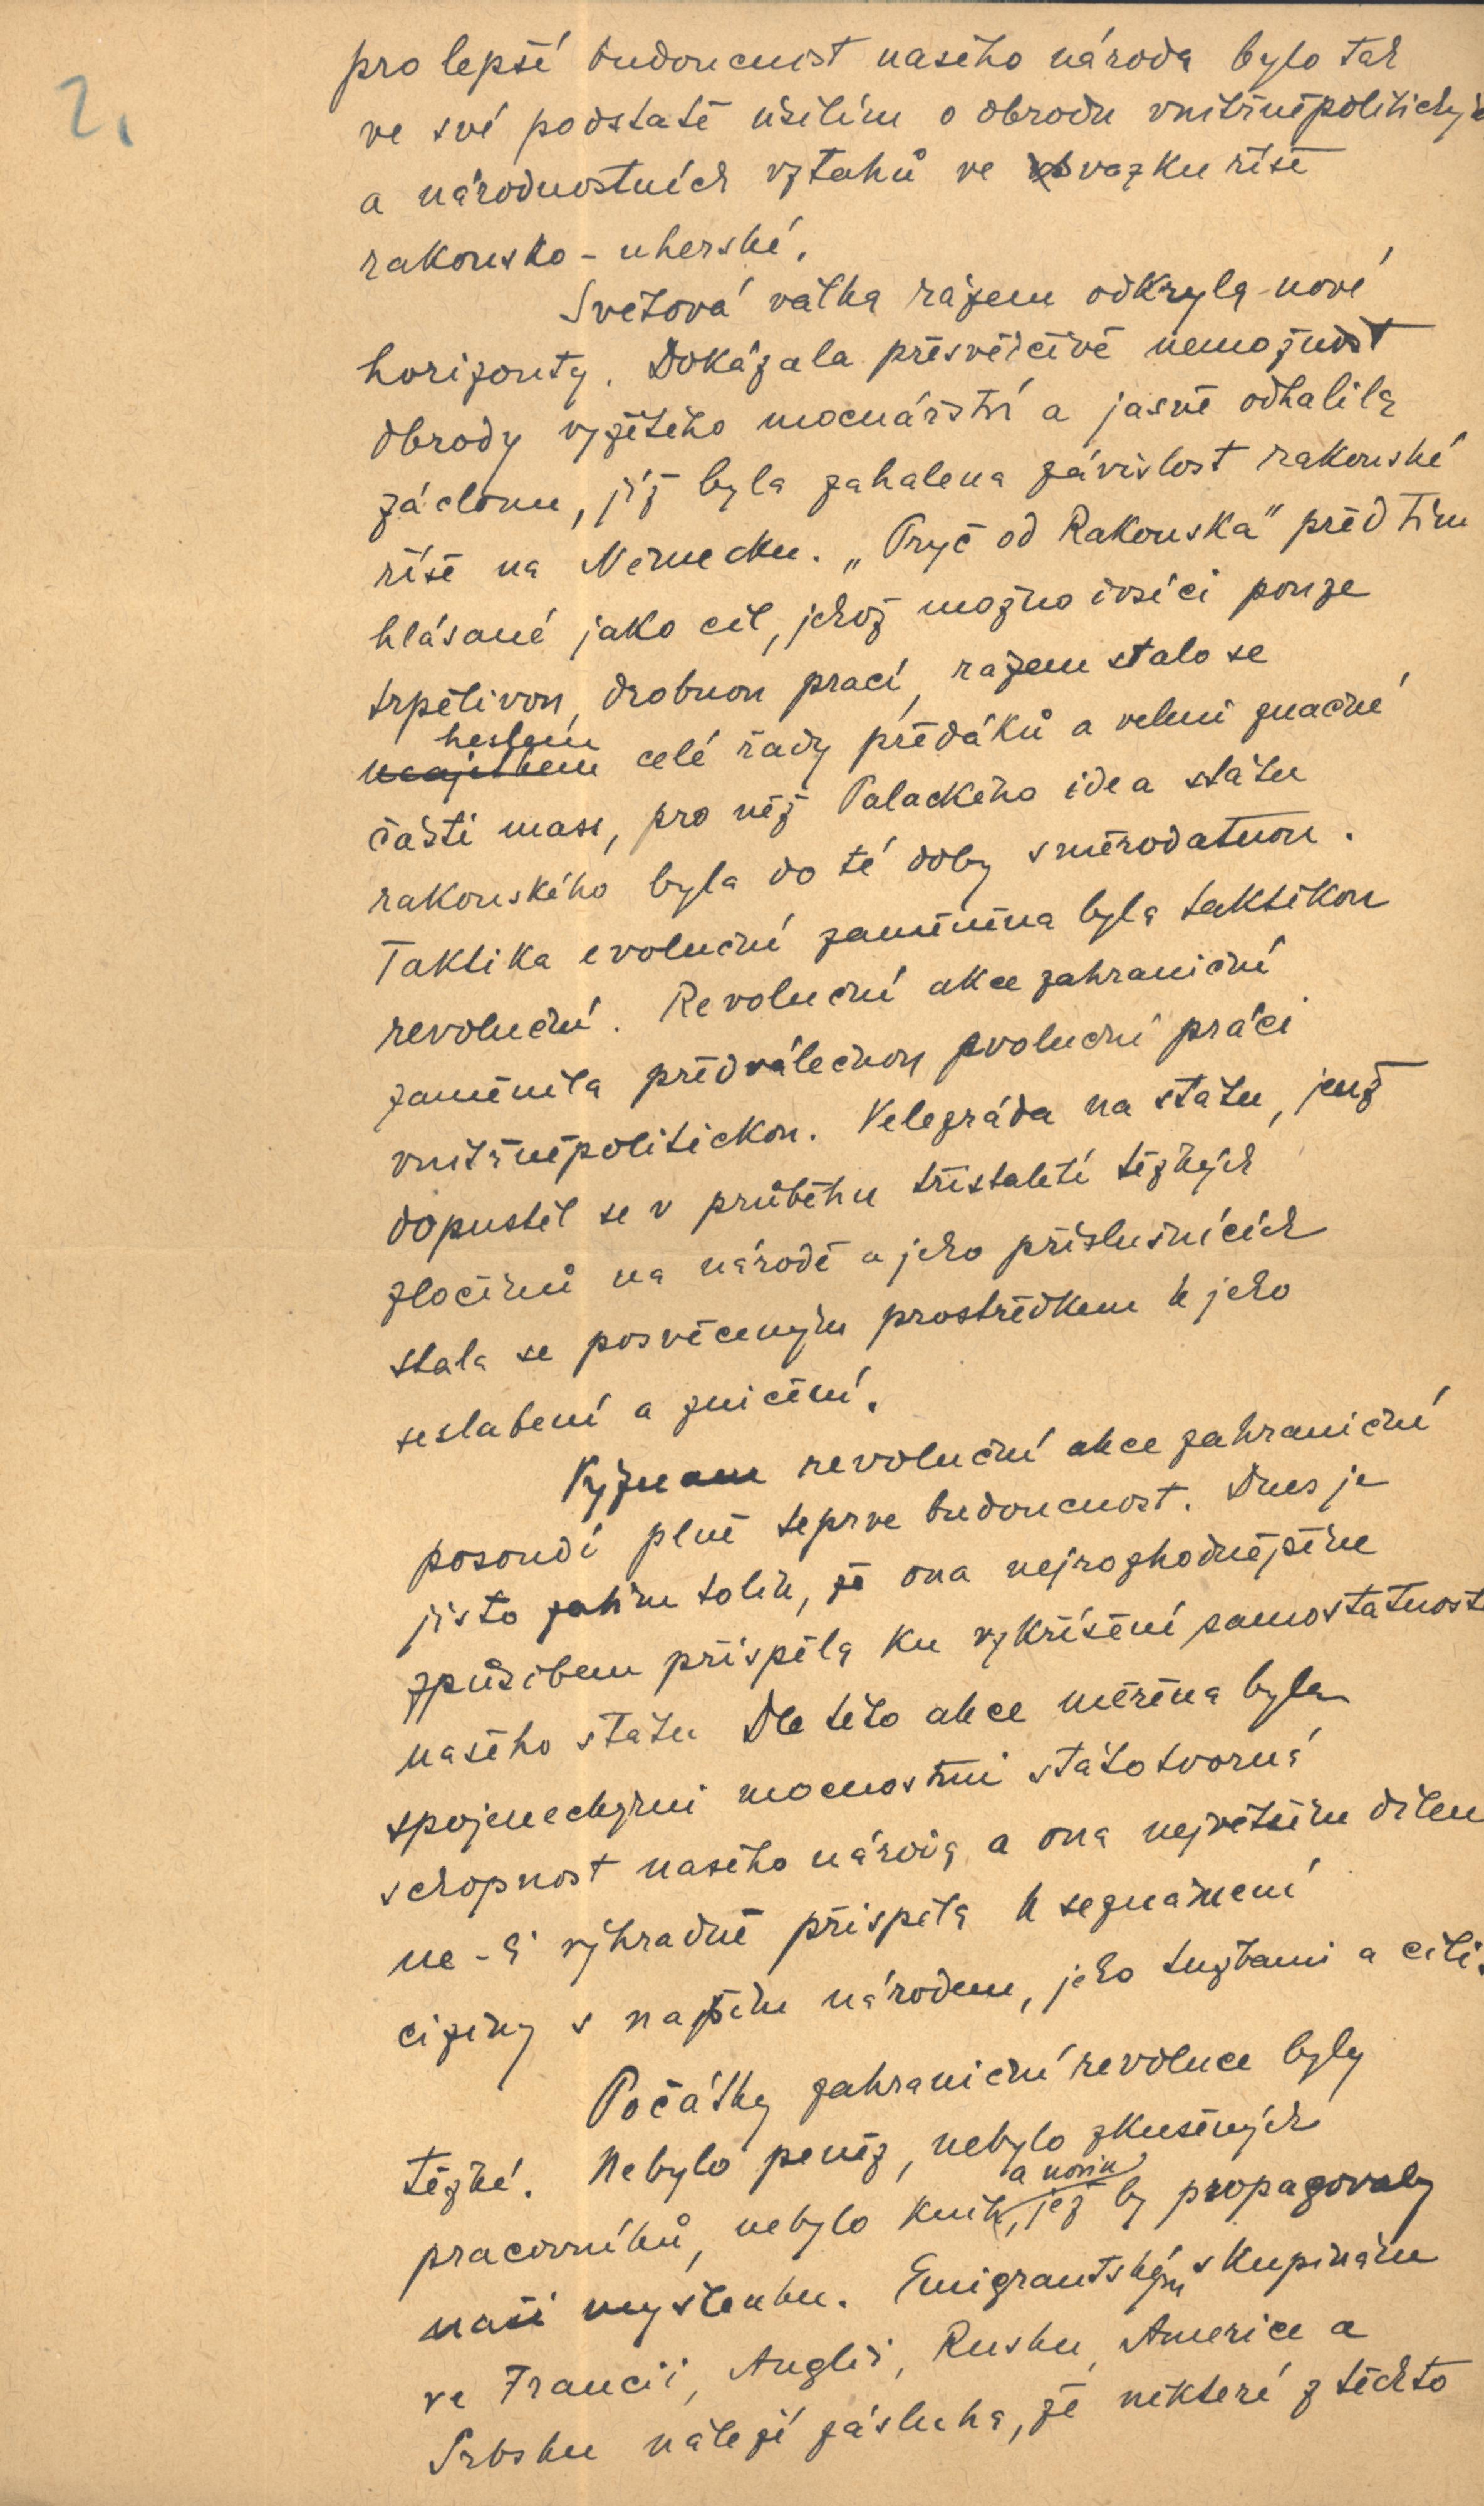 2.
pro lepší budoucnost našeho národa bylo tak
ve své podstatě úsilím o obrodu vnitřněpolitických
a národnostních vztahů ve svazku říše
rakousko-uherské.
Světová válka rázem odkryla nové
horizonty. Dokázala přesvědčivě nemožnost
obrody vyžitého mocnářství a jasně odhalila
záclonu, jíž byla zahalena závislost rakouské
říše na Německu. „Pryč od Rakouska" před tím
hlásané jako cíl, jehož možno dosíci pouze
trpělivou, drobnou prací, rázem stalo se
heslem
celé řady předáků a velmi značné
části mass, pro něž Palackého idea státu
rakouského byla do té doby směrodatnou.
Taktika evoluční zaměněna byla taktikou
revoluční. Revoluční akce zahraniční
zaměnila předválečnou evoluční práci
vnitřněpolitickou. Velezráda na státu, jenž
dopustil se v průběhu třístaletí těžkých
zločinů na národě a jeho příslušnících
stala se posvěceným prostředkem k jeho
seslabení a zničení.
Význam revoluční akce zahraniční
posoudí plně teprve budoucnost. Dnes je
jisto zatím tolik, že ona nejrozhodnějším
způsobem přispěla ku vzkříšení samostatnosti
našeho státu Dle této akce měřena byla
spojeneckými mocnostmi státotvorná
schopnost našeho národa a ona největším dílem
ne-li výhradně přispěla k seznámení
ciziny s naším národem, jeho tužbami a cíli.
Počátky zahraniční revoluce byly
těžké. Nebylo peněz, nebylo zkušených
a novin
pracovníků, nebylo knih, jež by propagovaly
naši myšlenku. Emigrantským skupinám
ve Francii, Anglii, Rusku, Americe a
Srbsku náleží zásluha, že některé z těchto